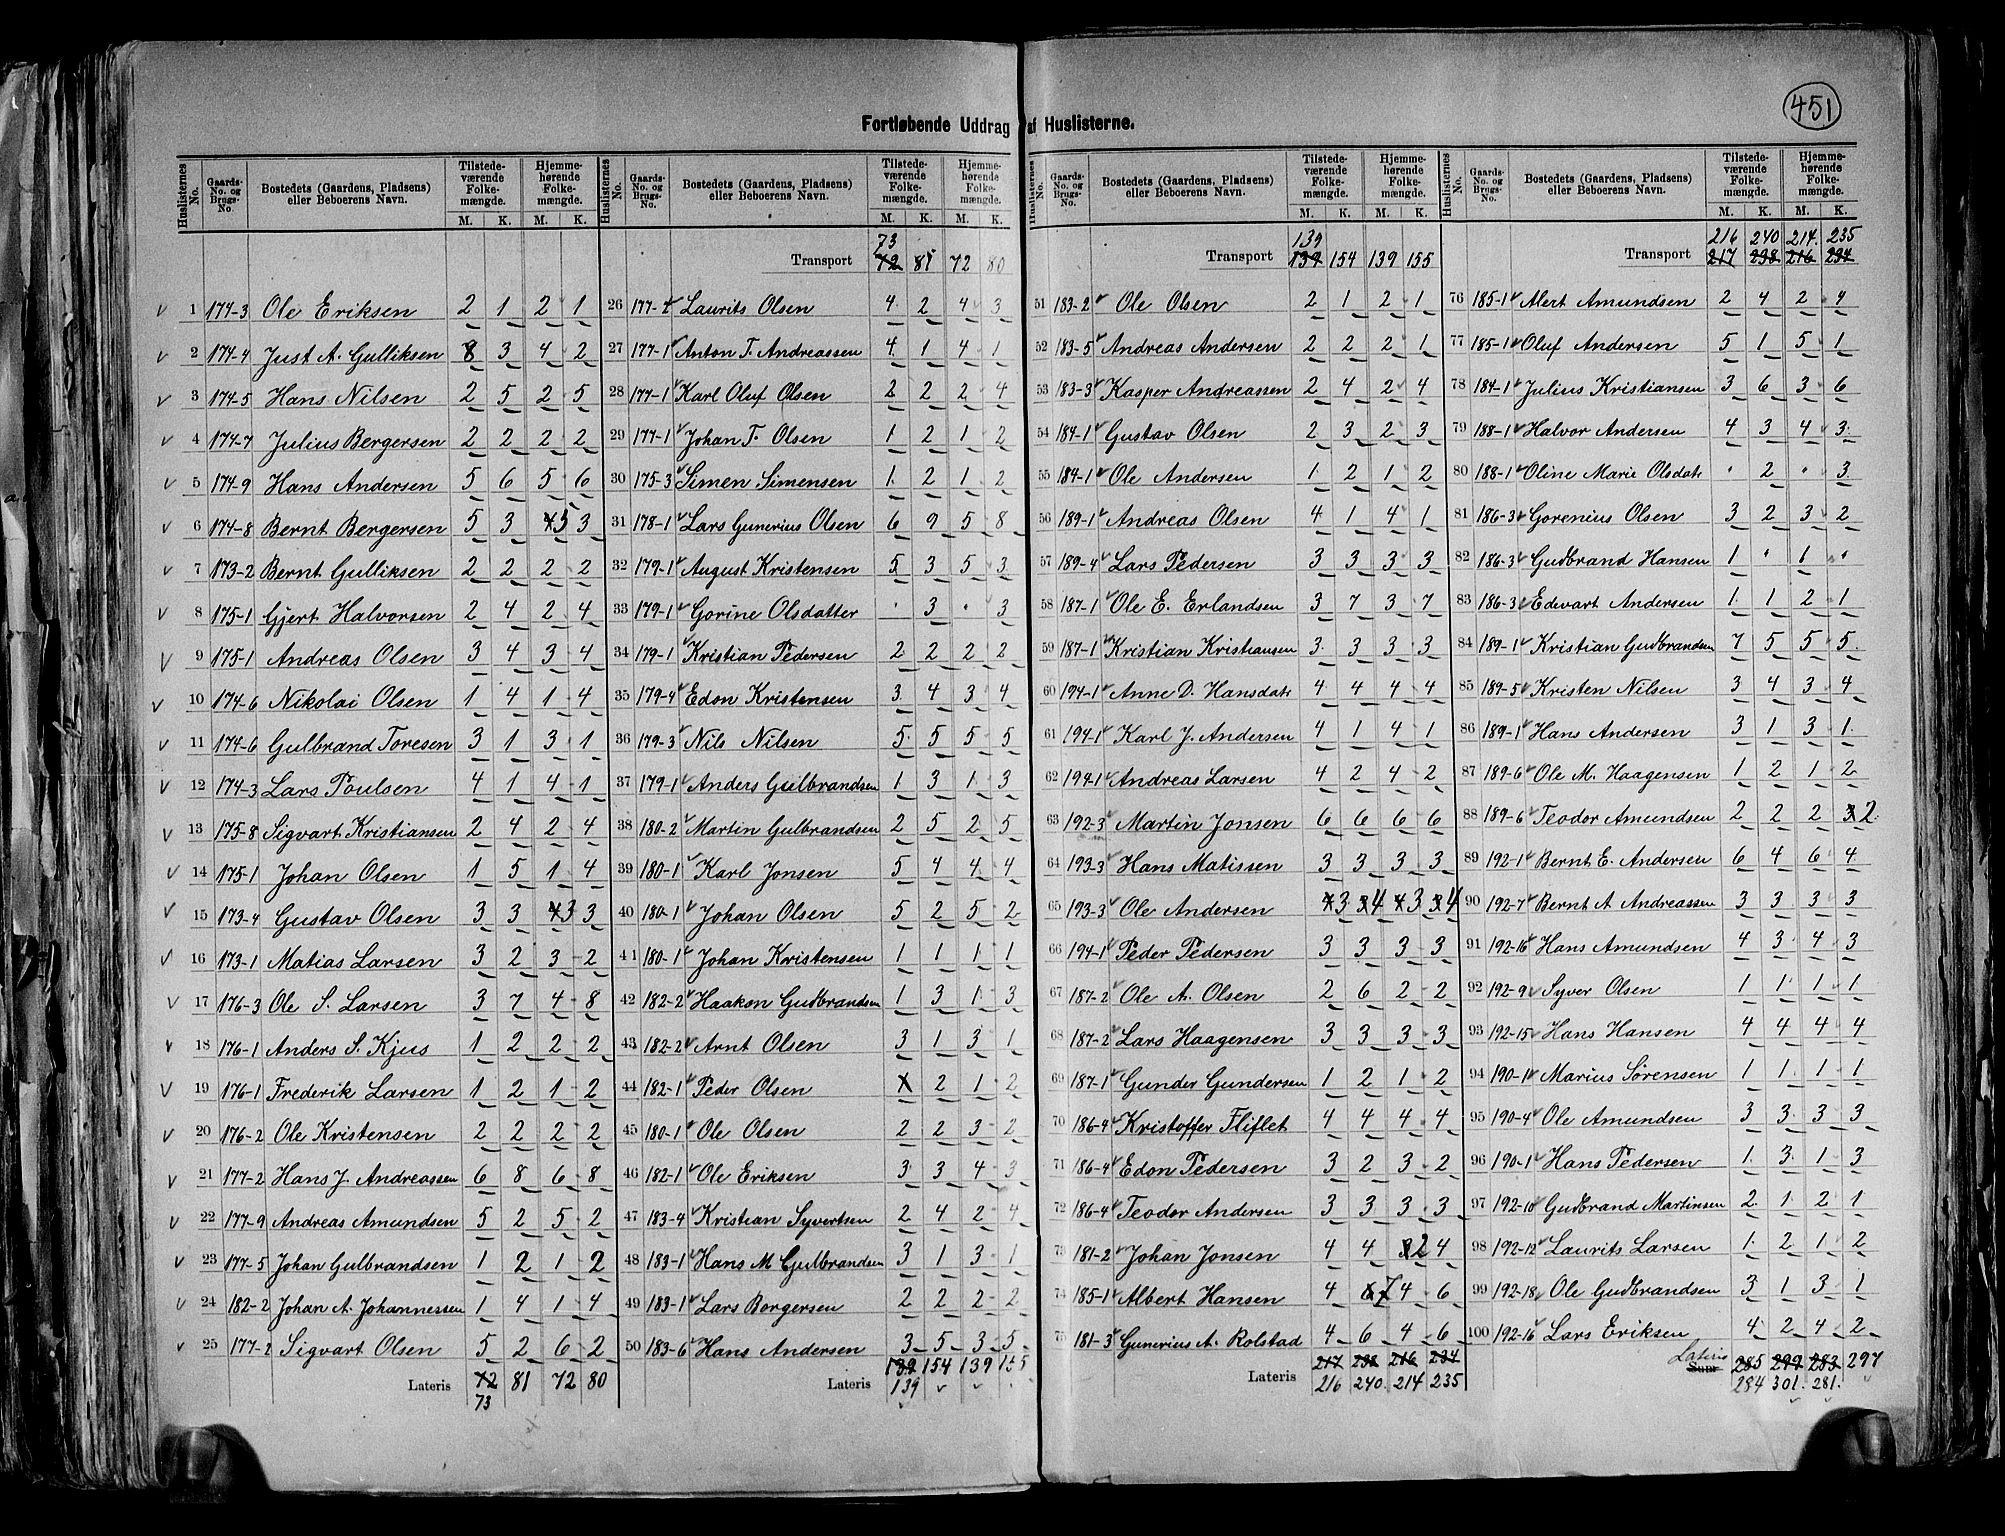 451
Fortløbende Uddrag af Huslisterne.
Huslisternes No. Gaards-No. og Brugs-No. Bostedets (Gaardens, Pladsens) eller Beboerens Navn. Tilstede-værende Folke-mængde. M. K. Hjemme-hørende Folke-mængde. M. K.
1 174-3 Ole Eriksen 2 1 2 1
2 174-4 Just A. Gulliksen 8 3 4 2
3 174-5 Hans Nilsen 2 5 2 5
4 174-7 Julius Bergersen 2 2 2 2
5 174-9 Hans Andersen 5 6 5 6
6 174-8 Bernt Bergersen 5 3 4 5 3
7 173-2 Bernt Gulliksen 2 2 2 2
8 175-1 Gjert Halvorsen 2 4 2 4
9 175-1 Andreas Olsen 3 4 3 4
10 174-6 Nikolai Olsen 1 4 1 4
11 174-6 Gulbrand Toresen 3 1 3 1
12 174-3 Lars Poulsen 4 1 4 1
13 175-8 Sigvart Kristiansen 2 4 2 4
14 175-1 Johan Olsen 1 5 1 4
15 173-4 Gustav Olsen 3 3 4 3 3
16 173-1 Matias Larsen 3 2 3 2
17 176-3 Ole S. Larsen 3 7 4 8
18 176-1 Anders S. Kjus 1 2 2 2
19 176-1 Frederik Larsen 1 2 1 2
20 176-2 Ole Kristensen 2 2 2 2
21 177-2 Hans J. Andreassen 6 8 6 8
22 177-9 Andreas Amundsen 5 2 5 2
23 177-5 Johan Gulbrandsen 1 2 1 2
24 182-2 Johan A. Johannessen 1 4 1 4
25 177-2 Sigvart Olsen 5 2 6 2
Lateris 72 81 72 80
73
Huslisternes No. Gaards-No. og Brugs-No. Bostedets (Gaardens, Pladsens) eller Beboerens Navn. Tilstede-værende Folke-mængde. M. K. Hjemme-hørende Folke-mængde. M. K.
73
Transport 72 81 72 80
26 177-2 Laurits Olsen 4 2 4 3
27 177-1 Anton T. Andreassen 4 1 4 1
28 177-1 Karl Oluf Olsen 2 2 2 4
29 177-1 Johan T. Olsen 1 2 1 2
30 175-3 Simen Simensen 1 2 1 2
31 178-1 Lars Gunerius Olsen 6 9 5 8
32 179-1 August Kristensen 5 3 5 3
33 179-1 Gorine Olsdatter · 3 · 3
34 179-1 Kristian Pedersen 2 2 2 2
35 179-4 Edon Kristensen 3 4 3 4
36 179-3 Nils Nilsen 5 5 5 5
37 179-1 Anders Gulbrandsen 1 3 1 3
38 180-2 Martin Gulbrandsen 2 5 2 5
39 180-1 Karl Jonsen 5 4 4 4
40 180-1 Johan Olsen 5 2 5 2
41 180-1 Johan Kristensen 1 1 1 1
42 182-2 Haakon Gudbrandsen 1 3 1 3
43 182-2 Arnt Olsen 3 1 3 1
44 182-1 Peder Olsen 1 2 1 2
45 180-1 Ole Olsen 2 2 3 2
46 182-1 Ole Eriksen 3 3 4 3
47 183-4 Kristian Syvertsen 2 4 2 4
48 183-1 Hans M Gulbrandsen 3 1 3 1
49 183-1 Lars Borgersen 2 2 2 2
50 183-6 Hans Andersen 3 5 3 5
Lateris 139 154 139 155
139
Huslisternes No. Gaards-No. og Brugs-No. Bostedets (Gaardens, Pladsens) eller Beboerens Navn. Tilstede-værende Folke-mængde. M. K. Hjemme-hørende Folke-mængde. M. K.
139
Transport 139 154 139 155
51 183-2 Ole Olsen 2 1 2 1
52 183-5 Andreas Andersen 2 2 2 1
53 183-3 Kasper Andreassen 2 4 2 4
54 184-1 Gustav Olsen 2 3 2 3
55 184-1 Ole Andersen 1 2 1 2
56 189-1 Andreas Olsen 4 1 4 1
57 189-4 Lars Pedersen 3 3 3 3
58 187-1 Ole E. Erlandsen 3 7 3 7
59 187-1 Kristian Kristiansen 3 3 3 3
60 194-1 Anne D. Hansdatr 4 4 4 4
61 194-1 Karl J. Andersen 4 1 4 1
62 194-1 Andreas Larsen 4 2 4 2
63 192-3 Martin Jonsen 6 6 6 6
64 193-3 Hans Matissen 3 3 3 3
65 193-3 Ole Andersen 4 3 3 4 4 3 3 4
66 194-1 Peder Pedersen 3 3 3 3
67 187-2 Ole A. Olsen 2 6 2 2
68 187-2 Lars Haagensen 3 3 3 3
69 187-1 Gunder Gundersen 1 2 1 2
70 186-4 Kristoffer Fliflet 4 4 4 4
71 186-4 Edon Pedersen 3 2 3 2
72 186-4 Teodor Andersen 3 3 3 3
73 181-2 Johan Jonsen 4 4 3 2 4
74 185-1 Albert Hansen 4 6 7 4 6
75 181-3 Gunerius A. Rolstad 4 6 4 6
217 238 216 234
Lateris 216 240 214 235
Huslisternes No. Gaards-No. og Brugs-No. Bostedets (Gaardens, Pladsens) eller Beboerens Navn. Tilstede-værende Folke-mængde. M. K. Hjemme-hørende Folke-mængde. M. K.
216 240 214 235
Transport 217 238 216 234
76 185-1 Alert Amundsen 2 4 2 4
77 185-1 Oluf Andersen 5 1 5 1
78 184-1 Julius Kristiansen 3 6 3 6
79 188-1 Halvor Andersen 4 3 4 3
80 188-1 Oline Marie Olsdatr · 2 · 3
81 186-3 Gorenius Olsen 3 2 3 2
82 186-3 Gudbrand Hansen 1 · 1 ·
83 186-3 Edevart Andersen 1 1 2 1
84 189-1 Kristian Gudbrandsen 7 5 5 5
85 189-5 Kristen Nilsen 3 4 3 4
86 189-1 Hans Andersen 3 1 3 1
87 189-6 Ole M. Haagensen 1 2 1 2
88 189-6 Teodor Amundsen 2 2 2 3 2
89 192-1 Bernt E. Andersen 6 4 6 4
90 192-7 Bernt A Andreassen 3 3 3 3
91 192-16 Hans Amundsen 4 3 4 3
92 192-9 Syver Olsen 1 1 1 1
93 192-15 Hans Hansen 4 4 4 4
94 190-1 Marius Sørensen 1 1 1 1
95 190-4 Ole Amundsen 3 3 3 3
96 190-1 Hans Pedersen 1 3 1 3
97 192-10 Gudbrand Martinsen 2 1 2 1
98 192-12 Laurits Larsen 1 2 1 2
99 192-18 Ole Gudbrandsen 3 1 3 1
100 192-16 Lars Eriksen 4 2 4 2
Lateris
Sum 285 299 283 297
284 301 281